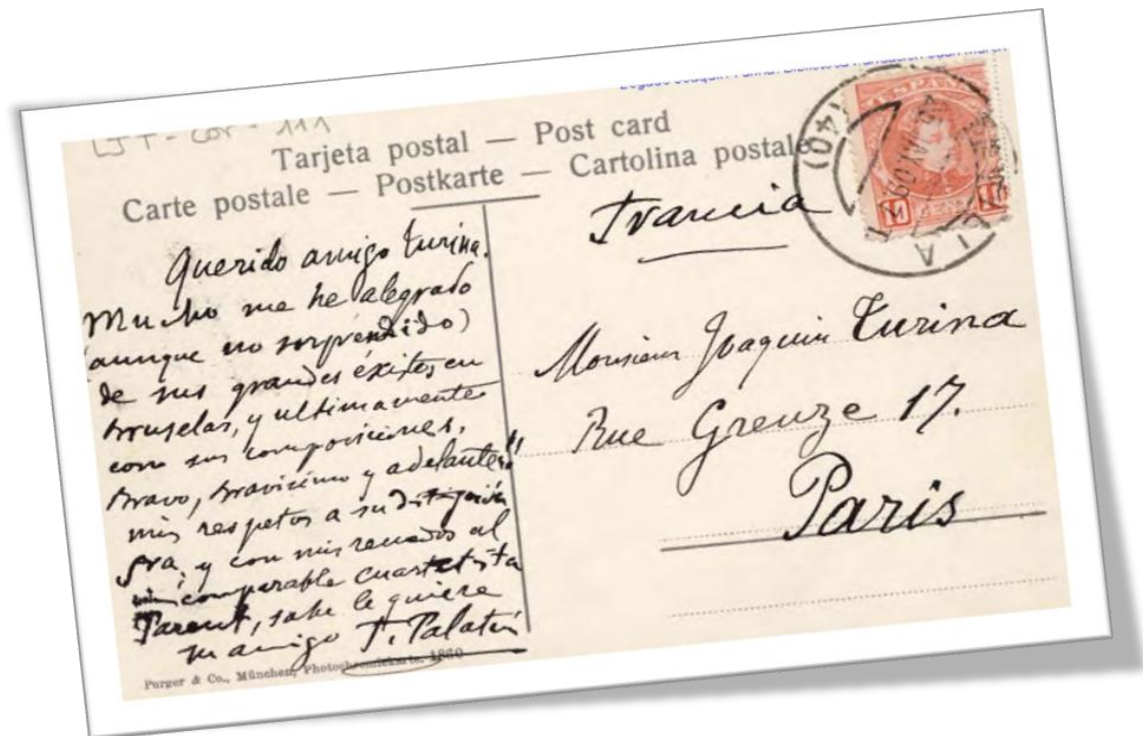 LJT-Cor-111
Tarjeta postal — Post card
Carte postale — Postkarte — Cartolina postale
Querido amigo Turina.
Mucho me he alegrado
(aunque no sorprendido)
de sus grandes éxitos, en
Bruselas, y ultimamente
con sus composiciones.
Bravo, bravisimo y adelante!!
mis respetos a su
sra, y con mis recuerdos al
incomparable cuartetista
Parent, sabe le quiere
su amigo F. Palatín
Purger & Co., München, Photochromiekarte. 1860
Francia
Monsieur Joaquin Turina
Rue Greuze 17.
Paris
ESPAÑA
10 CENT 10